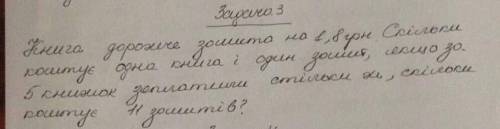 Задача 3
Книга дорожче зошита на 1,8 грн Скільки
коштує одна книга і один зошит, якщо за
5 книжок заплатили стільки ж, скільки
коштує 11 зошитів?